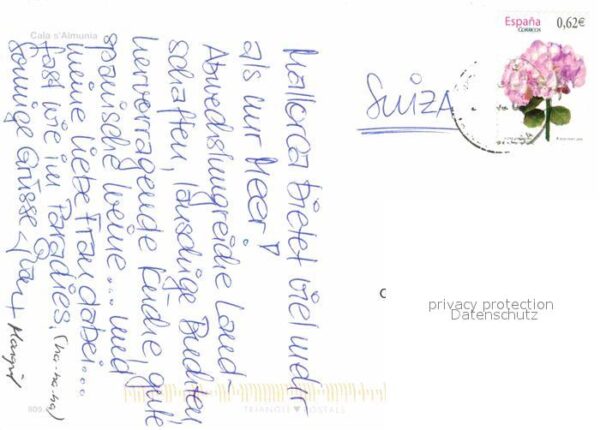 Cala s'Almunia
Mallorca bietet viel mehr
als nur Meer!
Abwechslungreiche Land-
schaften, lauschige Buchten,
hervorragende Küche, gute
spanische Weine... und
meine liebe Frau dabei...
fast wie im Paradies, (ha-ha-ha)
Sonnige Grüsse
+ Margrit
SUIZA
España
CORREOS
0,62€
privacy protection
Datenschutz
TRIANGLE POSTALS